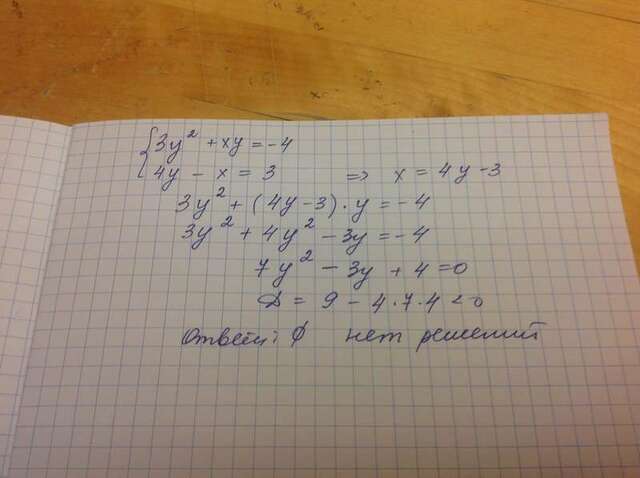 {3y² + xy = -4
4y - x = 3 => x = 4y - 3
3y² + (4y - 3) · y = -4
3y² + 4y² - 3y = -4
7y² - 3y + 4 = 0
D = 9 - 4 · 7 · 4 < 0
Ответ: ∅ нет решений